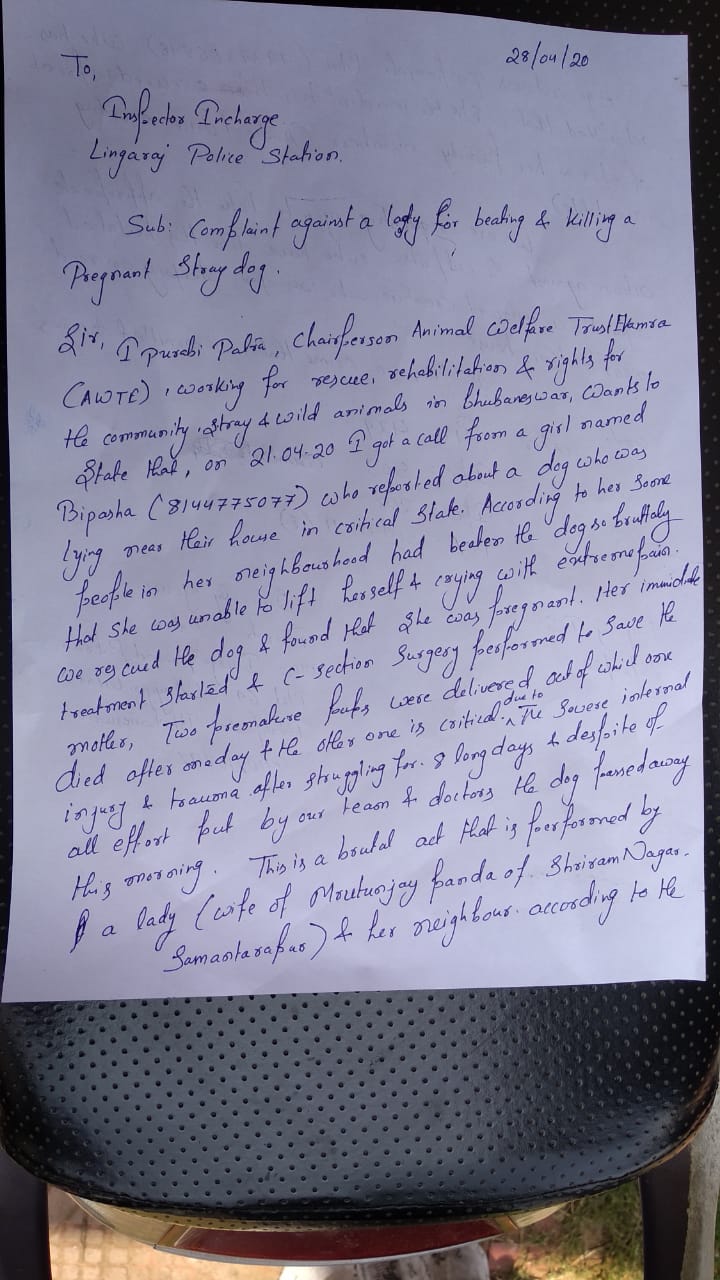 28/04/20
To,
Inspector Incharge
Lingaraj Police Station.
Sub: Complaint against a lady for beating & killing a
Pregnant Stray dog.
Sir, I Purabi Patra, Chairperson Animal Welfare Trust Ekamra
(AWTE), working for rescue, rehabilitation & rights for
the community, stray & wild animals in Bhubaneswar, wants to
State that, on 21.04.20 I got a call from a girl named
Bipasha (8144775077) who reported about a dog who was
lying near their house in critical state. According to her some
people in her neighbourhood had beaten the dog so bruttaly
that she was unable to lift herself & crying with extreme pain.
We rescued the dog & found that she was pregnant. Her immidiate
treatment started & C-section Surgery performed to save the
mother, Two premature pups were delivered out of which one
died after one day & the other one is critical. due to The Severe internal
injury & trauma after struggling for 8 long days & despite of
all effort put by our team & doctors the dog passed away
this morning. This is a brutal act that is performed by
a lady (wife of Mrutunjay panda of Shriram Nagar.
Samantarapur) & her neighbour. according to the